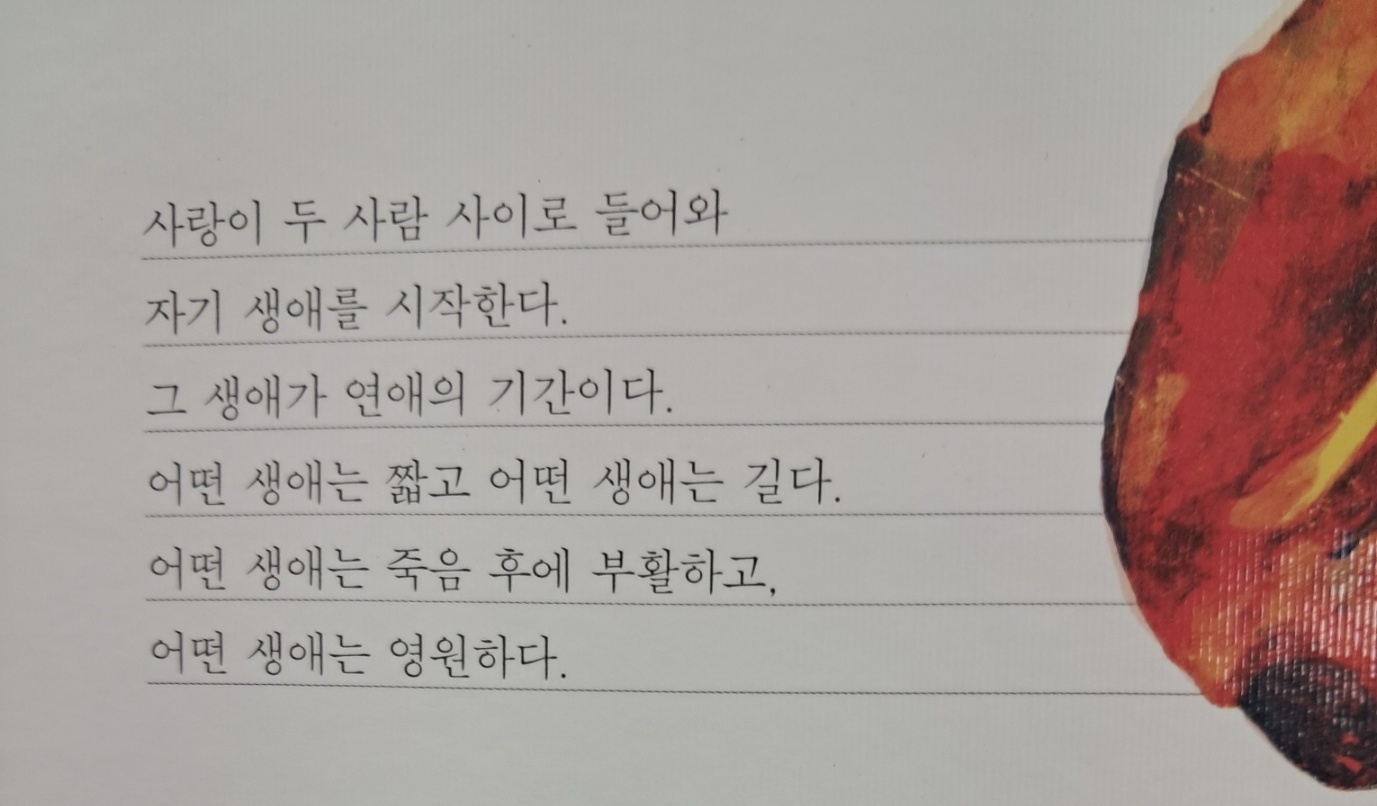 사랑이 두 사람 사이로 들어와
자기 생애를 시작한다.
그 생애가 연애의 기간이다.
어떤 생애는 짧고 어떤 생애는 길다.
어떤 생애는 죽음 후에 부활하고,
어떤 생애는 영원하다.